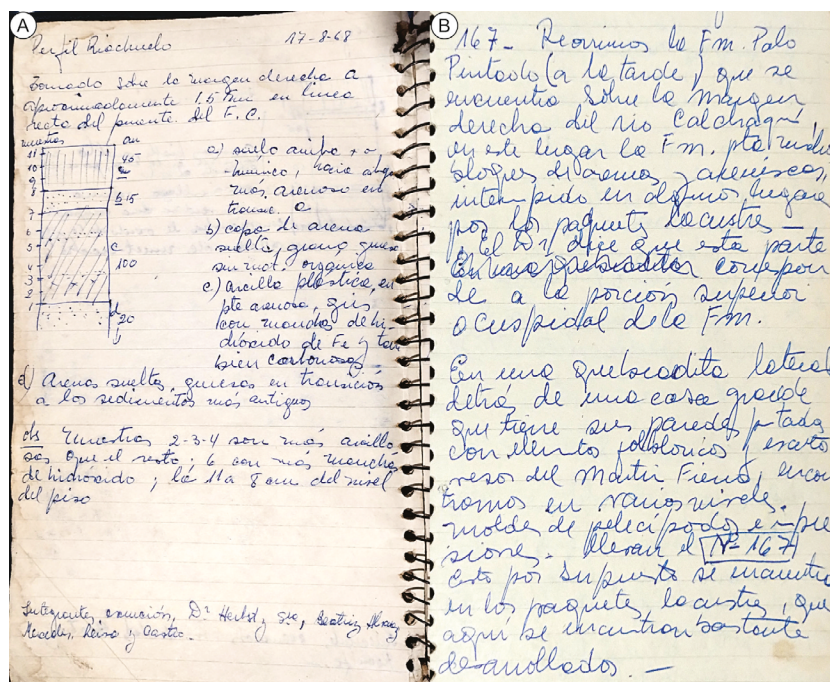 A
Perfil Riachuelo 17-8-68
Tomado sobre la margen derecha a
aproximadamente 1.5 Km en linea
recta del puente del F.C.
muestras cm
11
10 40
9
8 b 15
7
6
5 c
4 100
3
2
1 d 20
a) suelo arriba + o -
húmico, hacia abajo
más arenoso en
transic. a
b) capa de arena
suelta, grano grueso
sin mat. orgánica
c) arcilla plástica, en
pte arenosa, gris
con manchas de hi-
dróxido de Fe y tam
bien carbonosas
d) Arenas sueltas, gruesas en transición
a los sedimentos más antiguos
muestras 2-3-4 son más arcillo
sas que el resto; 6 con más manchas
de hidróxido; la 11 a 8 cm del nivel
del piso
Integrantes comisión, Dr Herbst y Sra, Beatriz
Mercedes, y Castro.
B
167- Recorrimos la Fm. Palo
Pintado (a la tarde) que se
encuentra sobre la margen
derecha del río Calchaquí,
en este lugar la Fm. pta muchos
bloques de arenas y areniscas,
interrumpido en algunos lugares
por los paquetes lacustres -
El Dr, dice que esta parte
correspon
de a la porción superior
o cuspidal de la Fm.
En una quebradita lateral
detrás de una casa grande
que tiene sus paredes pintadas
con elementos folkloricos y escritos
versos del Martin Fierro, encon
tramos en varios niveles
moldes de pelecipodos e impre
siones. Llevan el Nº 167
Esto por supuesto se encuentra
en los paquetes lacustres, que
aquí se encuentran bastante
desarrollados. -